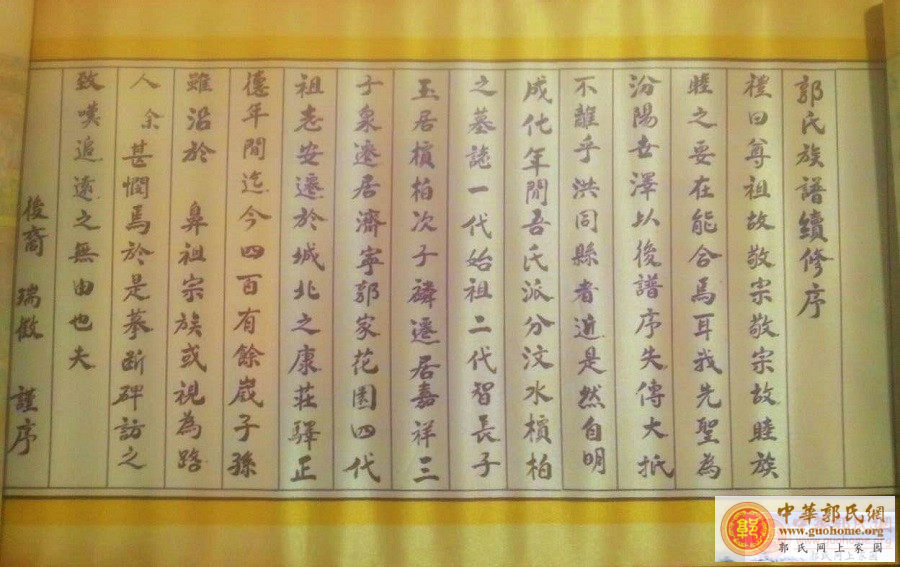 郭氏族譜續修序
禮曰尊祖故敬宗敬宗故睦族
睦之要在能合焉耳我先聖為
汾陽世澤以後譜序失傳大抵
不離乎洪同縣者近是然自明
成化年間吾氏派分汶水檳柏
之墓誌一代始祖二代智長子
玉居檳柏次子麟遷居嘉祥三
子泉遷居濟寧郭家花園四代
祖志安遷於城北之康莊驛正
德年間迄今四百有餘歲子孫
雖沿於 鼻祖宗族或視為路
人余甚憫焉於是摹斷碑訪之
致嘆追遠之無由也夫
後裔 瑞徵 謹序
中華郭氏網
www.guohome.org
郭氏网上家园